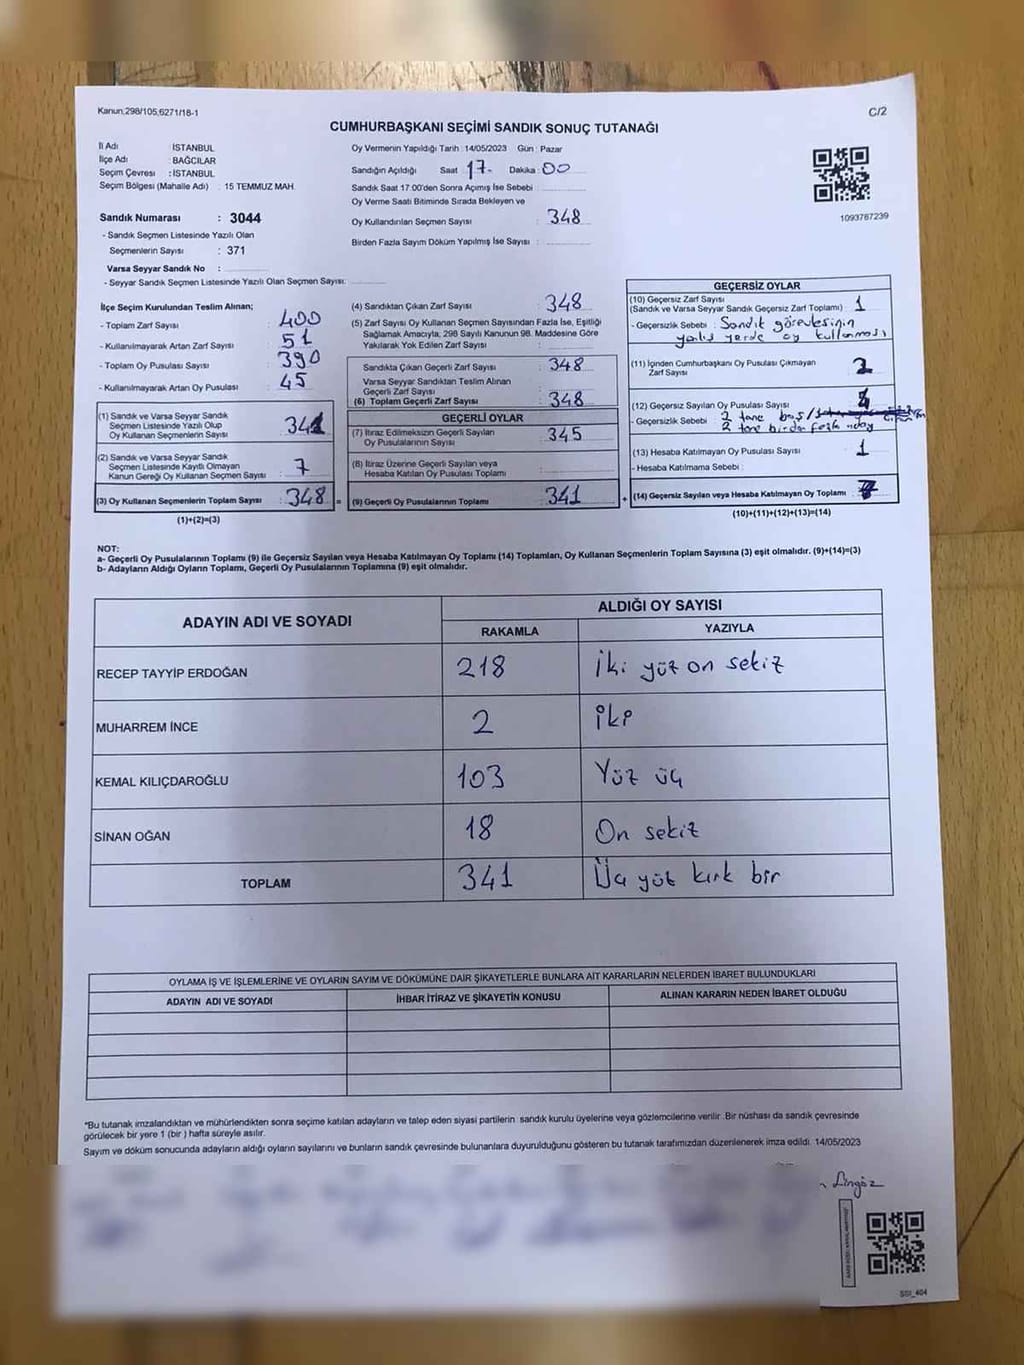 Kanun,298/105,6271/18-1
C/2
CUMHURBAŞKANI SEÇİMİ SANDIK SONUÇ TUTANAĞI
İl Adı : İSTANBUL
İlçe Adı : BAĞCILAR
Seçim Çevresi : İSTANBUL
Seçim Bölgesi (Mahalle Adı) : 15 TEMMUZ MAH.
Sandık Numarası : 3044
- Sandık Seçmen Listesinde Yazılı Olan
Seçmenlerin Sayısı : 371
Varsa Seyyar Sandık No :
- Seyyar Sandık Seçmen Listesinde Yazılı Olan Seçmen Sayısı:
Oy Vermenin Yapıldığı Tarih :14/05/2023 Gün : Pazar
Sandığın Açıldığı Saat 17- Dakika : 00
Sandık Saat 17:00'den Sonra Açımış İse Sebebi :
Oy Verme Saati Bitiminde Sırada Bekleyen ve
Oy Kullandırılan Seçmen Sayısı : 348
Birden Fazla Sayım Döküm Yapılmış İse Sayısı :
1093787239
İlçe Seçim Kurulundan Teslim Alınan;
- Toplam Zarf Sayısı : 400
- Kullanılmayarak Artan Zarf Sayısı : 51
- Toplam Oy Pusulası Sayısı : 390
- Kullanılmayarak Artan Oy Pusulası : 45
(1) Sandık ve Varsa Seyyar Sandık
Seçmen Listesinde Yazılı Olup
Oy Kullanan Seçmenlerin Sayısı : 341
(2) Sandık ve Varsa Seyyar Sandık
Seçmen Listesinde Kayıtlı Olmayan
Kanun Gereği Oy Kullanan Seçmen Sayısı : 7
(3) Oy Kullanan Seçmenlerin Toplam Sayısı : 348 =
(1)+(2)=(3)
(4) Sandıktan Çıkan Zarf Sayısı : 348
(5) Zarf Sayısı Oy Kullanan Seçmen Sayısından Fazla İse, Eşitliği
Sağlamak Amacıyla, 298 Sayılı Kanunun 98. Maddesine Göre
Yakılarak Yok Edilen Zarf Sayısı :
Sandıkta Çıkan Geçerli Zarf Sayısı : 348
Varsa Seyyar Sandıktan Teslim Alınan
Geçerli Zarf Sayısı :
(6) Toplam Geçerli Zarf Sayısı : 348
GEÇERLİ OYLAR
(7) İtiraz Edilmeksizin Geçerli Sayılan
Oy Pusulalarının Sayısı : 345
(8) İtiraz Üzerine Geçerli Sayılan veya
Hesaba Katılan Oy Pusulası Toplamı :
(9) Geçerli Oy Pusulalarının Toplamı : 341 +
GEÇERSİZ OYLAR
(10) Geçersiz Zarf Sayısı
(Sandık ve Varsa Seyyar Sandık Geçersiz Zarf Toplamı) : 1
- Geçersizlik Sebebi : Sandık görevlisinin
yanlış yerde oy kullanması
(11) İçinden Cumhurbaşkanı Oy Pusulası Çıkmayan
Zarf Sayısı
(12) Geçersiz Sayılan Oy Pusulası Sayısı
- Geçersizlik Sebebi : 2 tane boş/
2 tane birden fazla aday
(13) Hesaba Katılmayan Oy Pusulası Sayısı : 1
- Hesaba Katılmama Sebebi :
(14) Geçersiz Sayılan veya Hesaba Katılmayan Oy Toplamı : 7
(10)+(11)+(12)+(13)=(14)
NOT:
a- Geçerli Oy Pusulalarının Toplamı (9) ile Geçersiz Sayılan veya Hesaba Katılmayan Oy Toplamı (14) Toplamları, Oy Kullanan Seçmenlerin Toplam Sayısına (3) eşit olmalıdır. (9)+(14)=(3)
b- Adayların Aldığı Oyların Toplamı, Geçerli Oy Pusulalarının Toplamına (9) eşit olmalıdır.
ADAYIN ADI VE SOYADI
ALDIĞI OY SAYISI
RAKAMLA YAZIYLA
RECEP TAYYİP ERDOĞAN 218 İki yüz on sekiz
MUHARREM İNCE 2 iki
KEMAL KILIÇDAROĞLU 103 Yüz üç
SİNAN OĞAN 18 On sekiz
TOPLAM 341 Üç yüz kırk bir
OYLAMA İŞ VE İŞLEMLERİNE VE OYLARIN SAYIM VE DÖKÜMÜNE DAİR ŞİKAYETLERLE BUNLARA AİT KARARLARIN NELERDEN İBARET BULUNDUKLARI
ADAYIN ADI VE SOYADI İHBAR İTİRAZ VE ŞİKAYETİN KONUSU ALINAN KARARIN NEDEN İBARET OLDUĞU
*Bu tutanak imzalandıktan ve mühürlendikten sonra seçime katılan adayların ve talep eden siyasi partilerin sandık kurulu üyelerine veya gözlemcilerine verilir. Bir nüshası da sandık çevresinde
görülecek bir yere 1 (bir) hafta süreyle asılır.
Sayım ve döküm sonucunda adayların aldığı oyların sayılarını ve bunların sandık çevresinde bulunanlara duyurulduğunu gösteren bu tutanak tarafımızdan düzenlenerek imza edildi. 14/05/2023
Lingöz
SSI_404